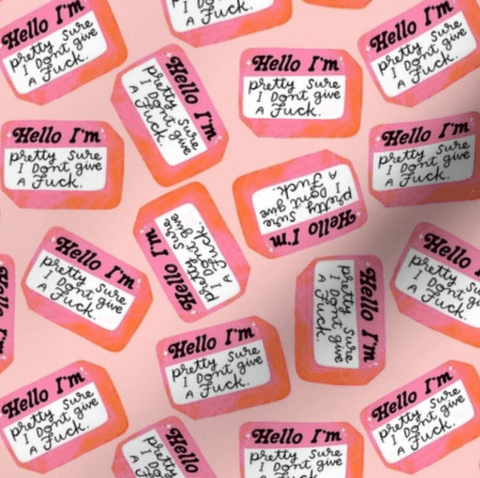 Hello I'm
pretty Sure
I Dont give
A Fuck.
A Fuck.
Hello I'm
pretty Sure
I Dont give
A Fuck.
Hello I'm
pretty Sure
I Dont give
A Fuck.
Hello I'm
pretty Sure
I Dont give
A Fuck.
Hello I'm
pretty Sure
I Dont give
A Fuck.
Hello I'm
pretty Sure
I Dont give
A Fuck.
Hello I'm
pretty Sure
I Dont give
A Fuck.
Hello I'm
pretty Sure
I Dont give
A Fuck.
Hello I'm
pretty Sure
I Dont give
A Fuck.
Hello I'm
pretty Sure
I Dont give
A Fuck.
Hello
pretty
I Dont
A Fuck.
Hello I'm
pretty Sure
I Dont give
A Fuck.
Hello I'm
pretty Sure
I Dont give
A Fuck.
Hello I'm
pretty Sure
I Dont give
A Fuck.
Hello
pretty
I Dont
Hello I'm
pretty Sure
I Dont give